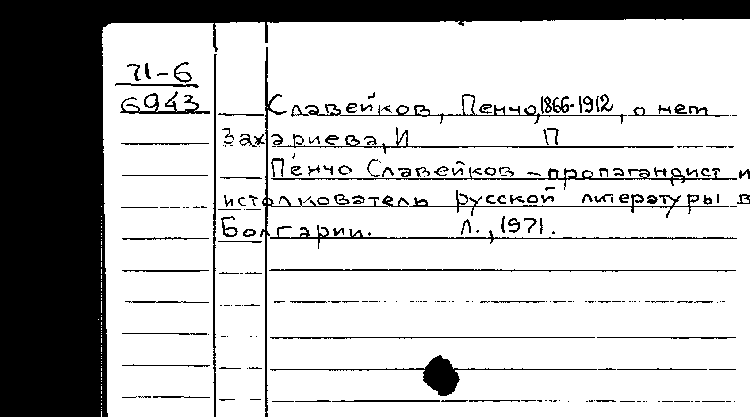 71-6
6943
Славейков, Пенчо, 1866-1912, о нем
Захариева, И П
Пенчо Славейков - пропагандист и
истолкователь русской литературы в
Болгарии. Л., 1971.